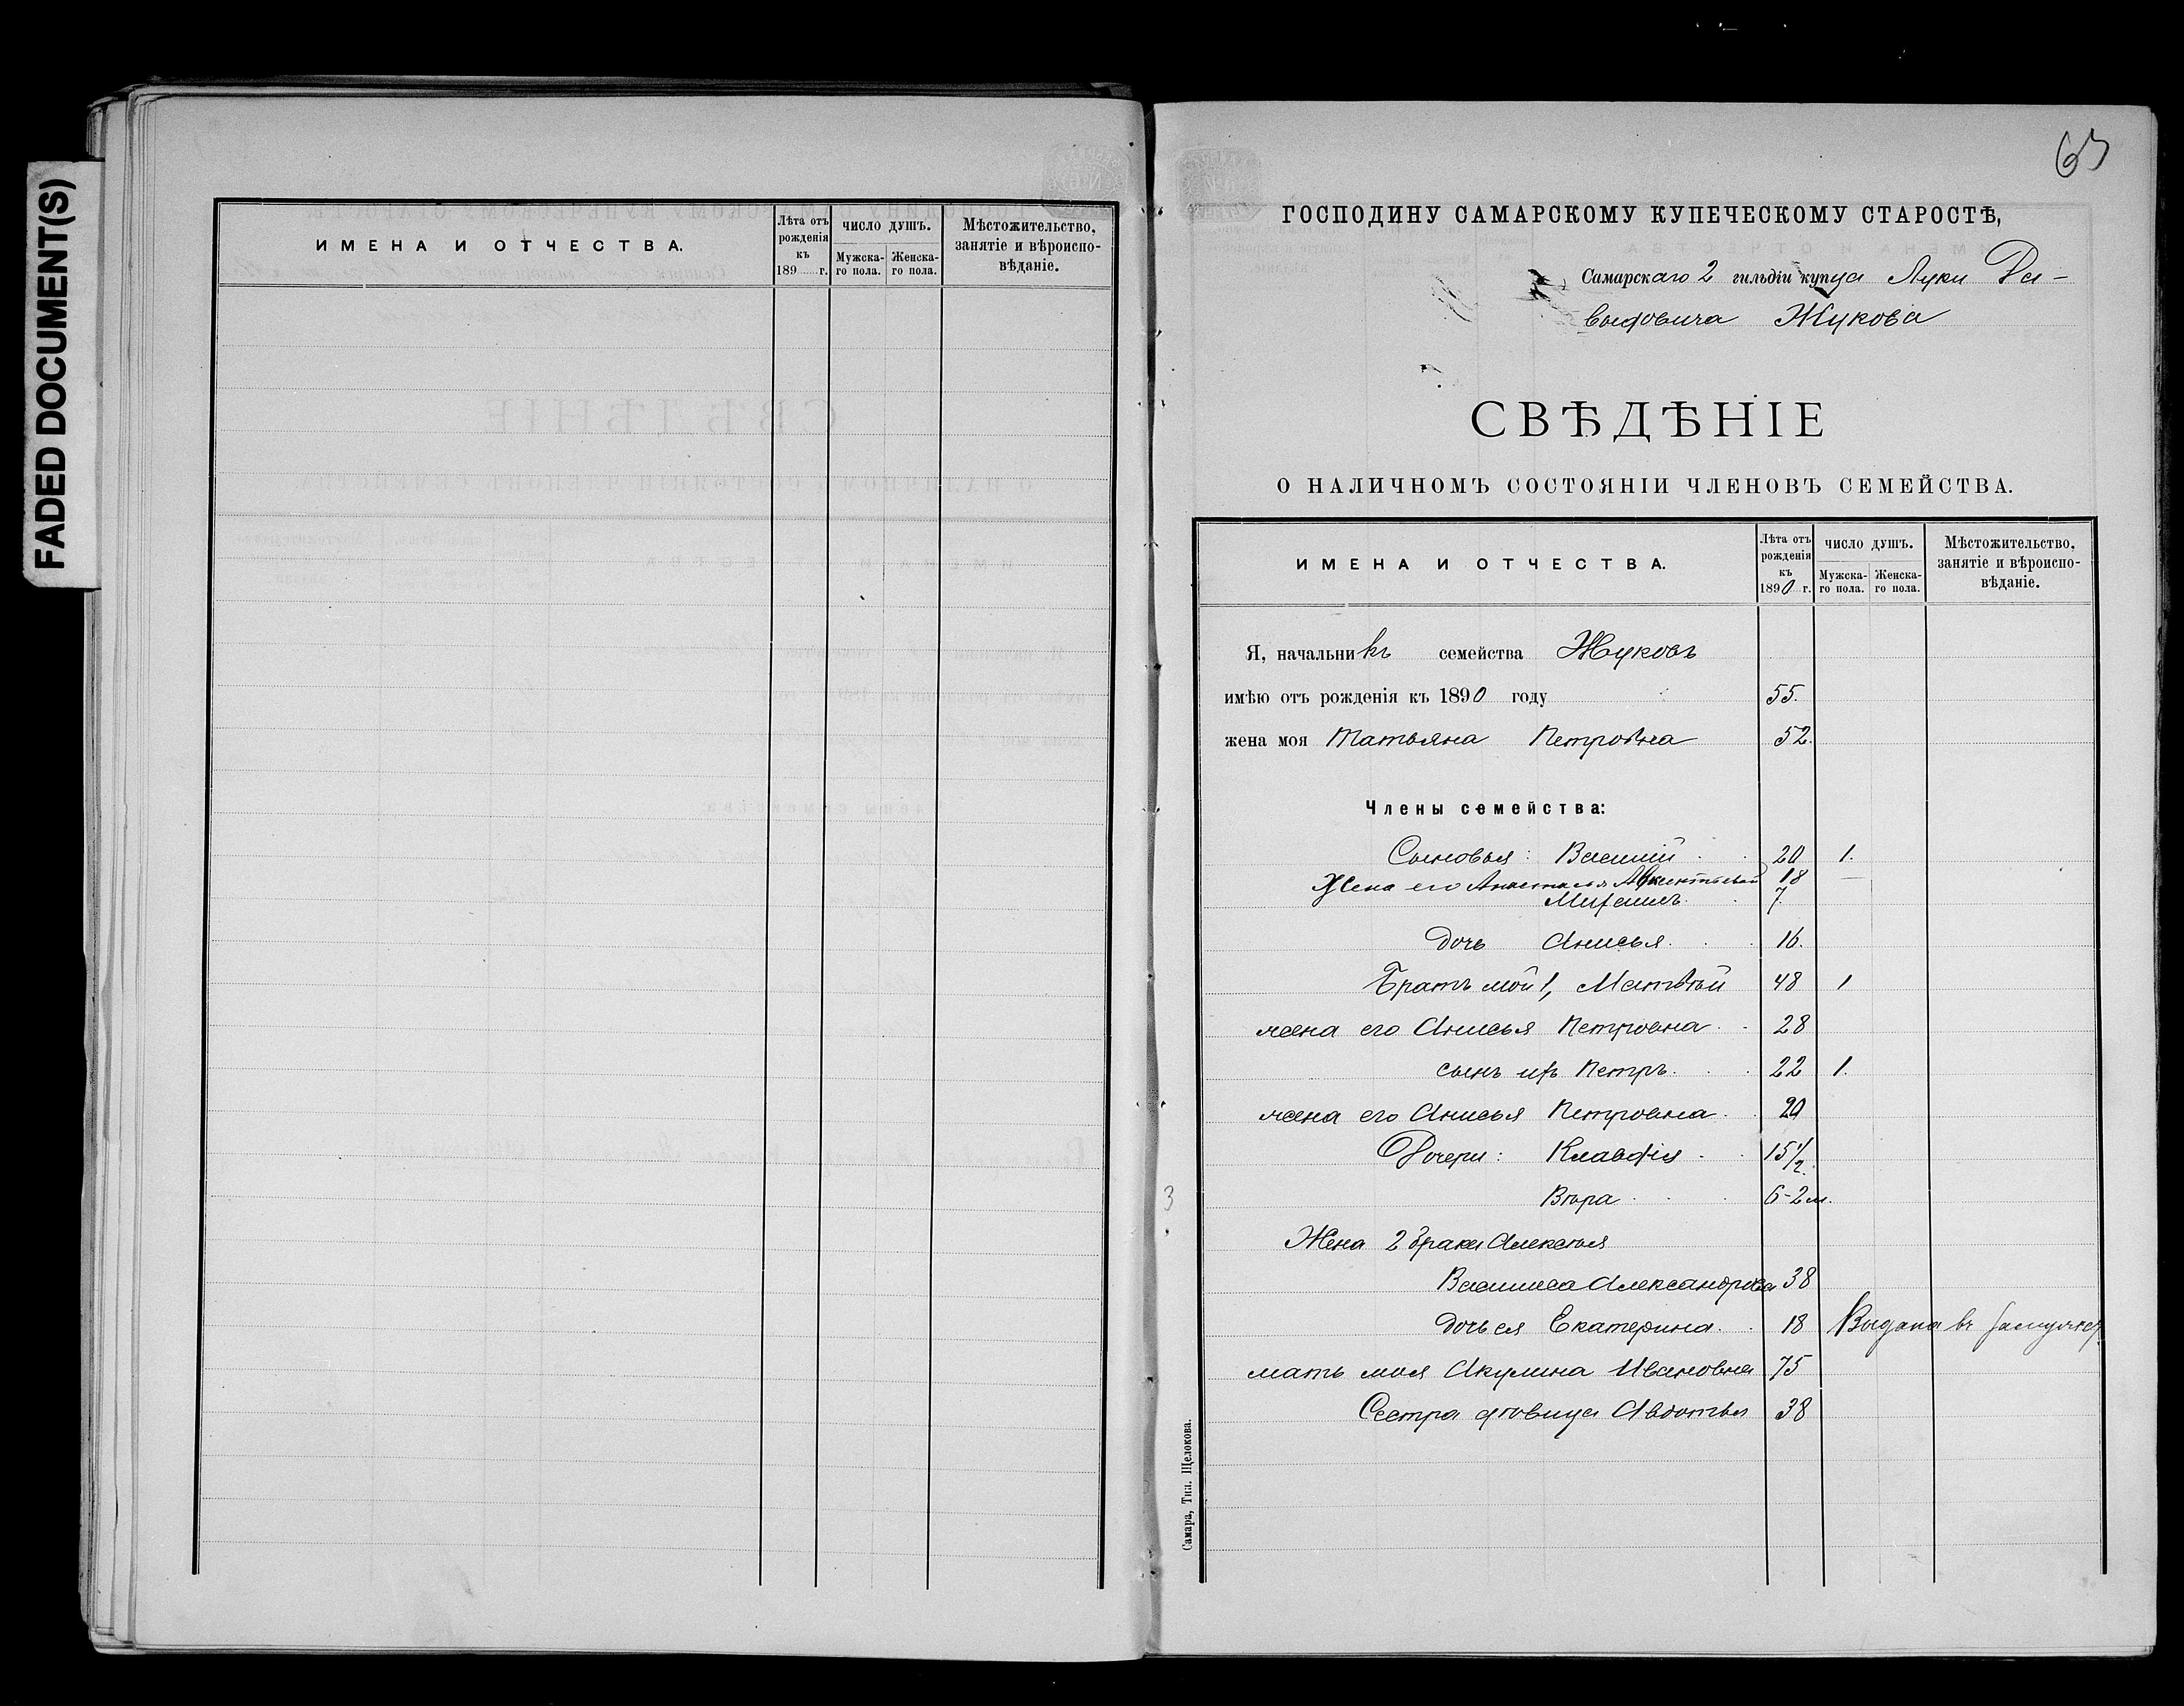 FADED DOCUMENT(S)
ИМЕНА И ОТЧЕСТВА.
Лѣта отъ рожденія къ 189 г.
ЧИСЛО ДУШЪ.
Мужска-го пола.
Женска-го пола.
Мѣстожительство, занятіе и вѣроиспо-вѣданіе.
63
ГОСПОДИНУ САМАРСКОМУ КУПЕЧЕСКОМУ СТАРОСТѢ,
Самарскаго 2 гильдіи купца Луки Да-
выдовича Жукова
СВѢДѢНІЕ
О НАЛИЧНОМЪ СОСТОЯНІИ ЧЛЕНОВЪ СЕМЕЙСТВА.
ИМЕНА И ОТЧЕСТВА.
Лѣта отъ рожденія къ 1890 г.
ЧИСЛО ДУШЪ.
Мужска-го пола.
Женска-го пола.
Мѣстожительство, занятіе и вѣроиспо-вѣданіе.
Я, начальникъ семейства Жуковъ
имѣю отъ рожденія къ 1890 году 55.
жена моя Татьяна Петровна 52.
Члены семейства:
Сыновья: Василій 20 1.
Жена его Анастасья 18
Михаилъ 7.
дочь Анисья 16.
Братъ мой 1, Матвѣй 48 1
жена его Анисья Петровна 28
сынъ ихъ Петръ 22 1.
жена его Анисья Петровна 20
Дочери: Клавдія 15 1/2
Вѣра 6-2 м.
Жена 2 брака Алексѣя
Василиса Александрова 38
дочь ея Екатерина 18 Выдана въ замужес.
мать моя Акулина Ивановна 75
Сестра дѣвица Авдотья 38
3
Самара, Тип. Щелокова.